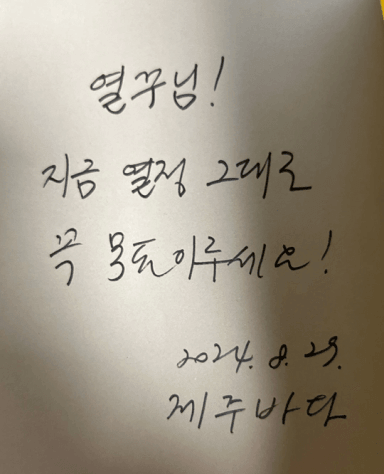 열꾸님!
지금 열정 그대로
꼭 목표 이루세요!
2024. 8. 29.
제주바다